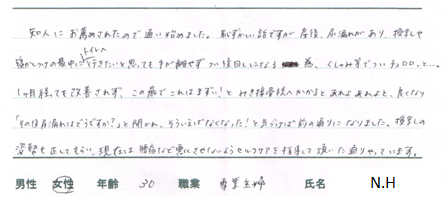 知人にお薦めされたので通い始めました。恥ずかしい話ですが産後、尿漏れがあり、授乳や
寝かしつけの最中にトイレへ行きたいと思っても手が離せずつい後回しになる為、くしゃみ等でついチョロッと…。
1ヶ月経っても改善されず、この歳でこれはまずい!とみき接骨院へかかるとあれよあれよと、良くなり
「その後尿漏れはどうですか?」と聞かれ、そういえばなくなった!と気づけば前の通りになりました。授乳の
姿勢も正してもらい、現在は腰痛など悪化させないようセルフケアを指導して頂いた通りやっています。
男性 女性 年齢 30 職業 専業主婦 氏名 N.H